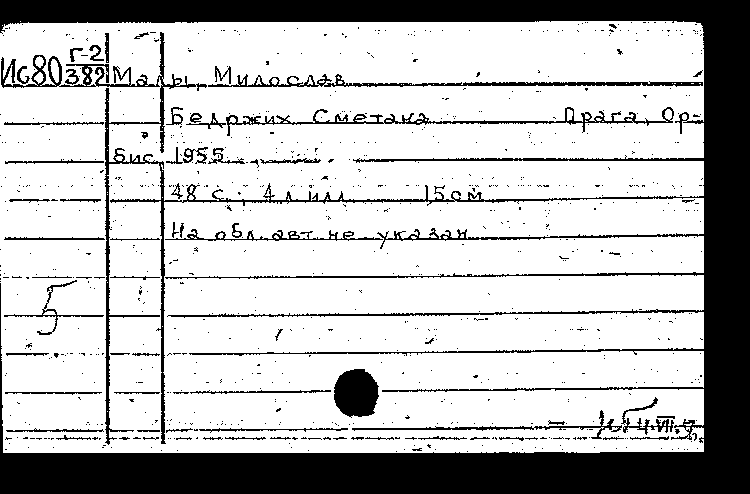 Ис80 Г-2
382 Малы, Милослав
Бедржих Сметана Прага, Ор-
бис, 1955
48 с.; 4 л илл 15см
На обл. авт не указан
5